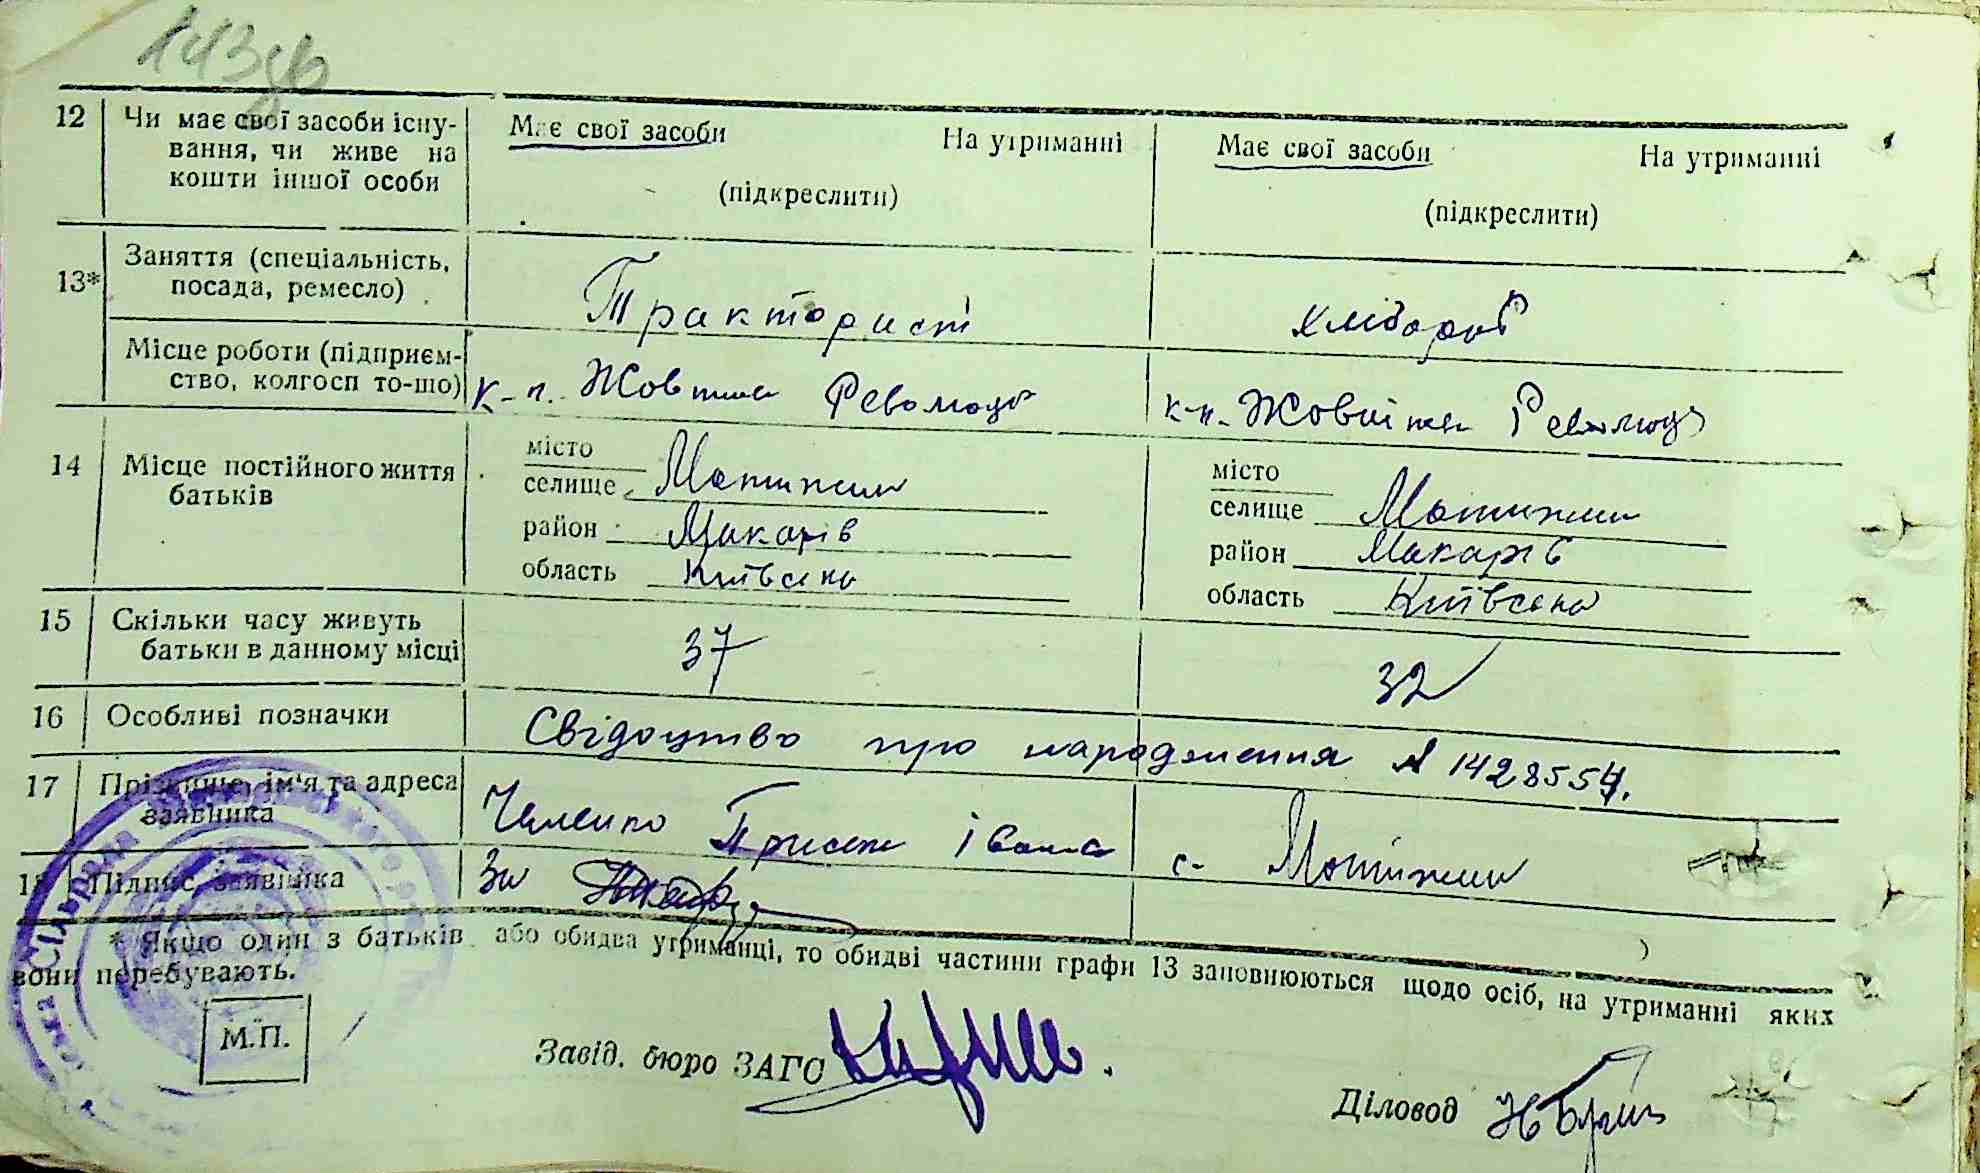 143
12 Чи має свої засоби існу- Має свої засоби На утриманні Має свої засоби На утриманні
вання, чи живе на
кошти іншої особи (підкреслити) (підкреслити)
13* Заняття (спеціальність,
посада, ремесло) Тракторист хлібороб
Місце роботи (підприєм-
ство, колгосп то-що) к-п. Жовтнев Революці к-п. Жовтнев Революці
14 Місце постійного життя місто місто
батьків селище Мотижин селище Мотижин
район Макарів район Макарів
область Київська область Київська
15 Скільки часу живуть
батьки в данному місці 37 32
16 Особливі позначки Свідоцтво про народження № 1428554.
17 Прізвище, ім'я та адреса
заявника Івана с. Мотижин
18 Підпис заявника За
* Якщо один з батьків або обидва утриманці, то обидві частини графи 13 заповнюються щодо осіб, на утриманні яких
вони перебувають.
М.П.
Завід. бюро ЗАГС
Діловод
Сільрада